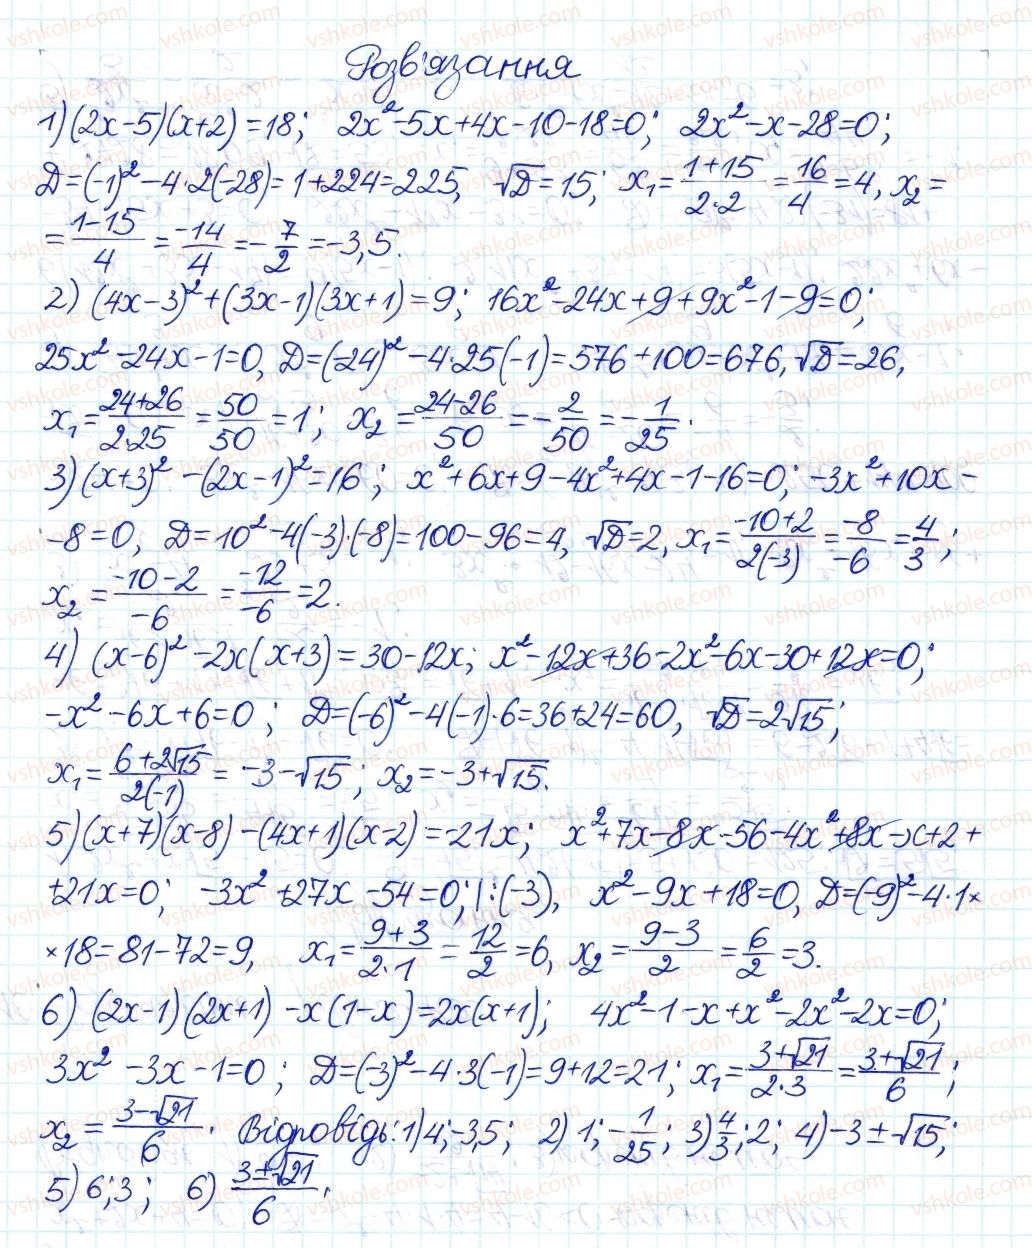 Розв'язання
1) (2x-5)(x+2)=18; 2x²-5x+4x-10-18=0; 2x²-x-28=0;
D=(-1)²-4·2(-28)=1+224=225, √D=15; x₁=(1+15)/(2·2)=16/4=4, x₂=
=(1-15)/4=-14/4=-7/2=-3,5.
2) (4x-3)²+(3x-1)(3x+1)=9; 16x²-24x+9+9x²-1-9=0;
25x²-24x-1=0, D=(-24)²-4·25(-1)=576+100=676, √D=26,
x₁=(24+26)/(2·25)=50/50=1; x₂=(24-26)/50=-2/50=-1/25.
3) (x+3)²-(2x-1)²=16; x²+6x+9-4x²+4x-1-16=0; -3x²+10x-
-8=0, D=10²-4(-3)·(-8)=100-96=4, √D=2, x₁=(-10+2)/(2(-3))=-8/-6=4/3;
x₂=(-10-2)/-6=-12/-6=2.
4) (x-6)²-2x(x+3)=30-12x; x²-12x+36-2x²-6x-30+12x=0;
-x²-6x+6=0; D=(-6)²-4(-1)·6=36+24=60, √D=2√15;
x₁=(6+2√15)/(2(-1))=-3-√15; x₂=-3+√15.
5) (x+7)(x-8)-(4x+1)(x-2)=-21x; x²+7x-8x-56-4x²+8x-x+2+
+21x=0; -3x²+27x-54=0; |:(-3), x²-9x+18=0, D=(-9)²-4·1×
×18=81-72=9, x₁=(9+3)/(2·1)=12/2=6, x₂=(9-3)/2=6/2=3.
6) (2x-1)(2x+1)-x(1-x)=2x(x+1); 4x²-1-x+x²-2x²-2x=0;
3x²-3x-1=0; D=(-3)²-4·3(-1)=9+12=21; x₁=(3+√21)/(2·3)=(3+√21)/6;
x₂=(3-√21)/6. Відповідь: 1) 4; -3,5; 2) 1; -1/25; 3) 4/3; 2; 4) -3±√15;
5) 6; 3; 6) (3±√21)/6.
vshkole.com